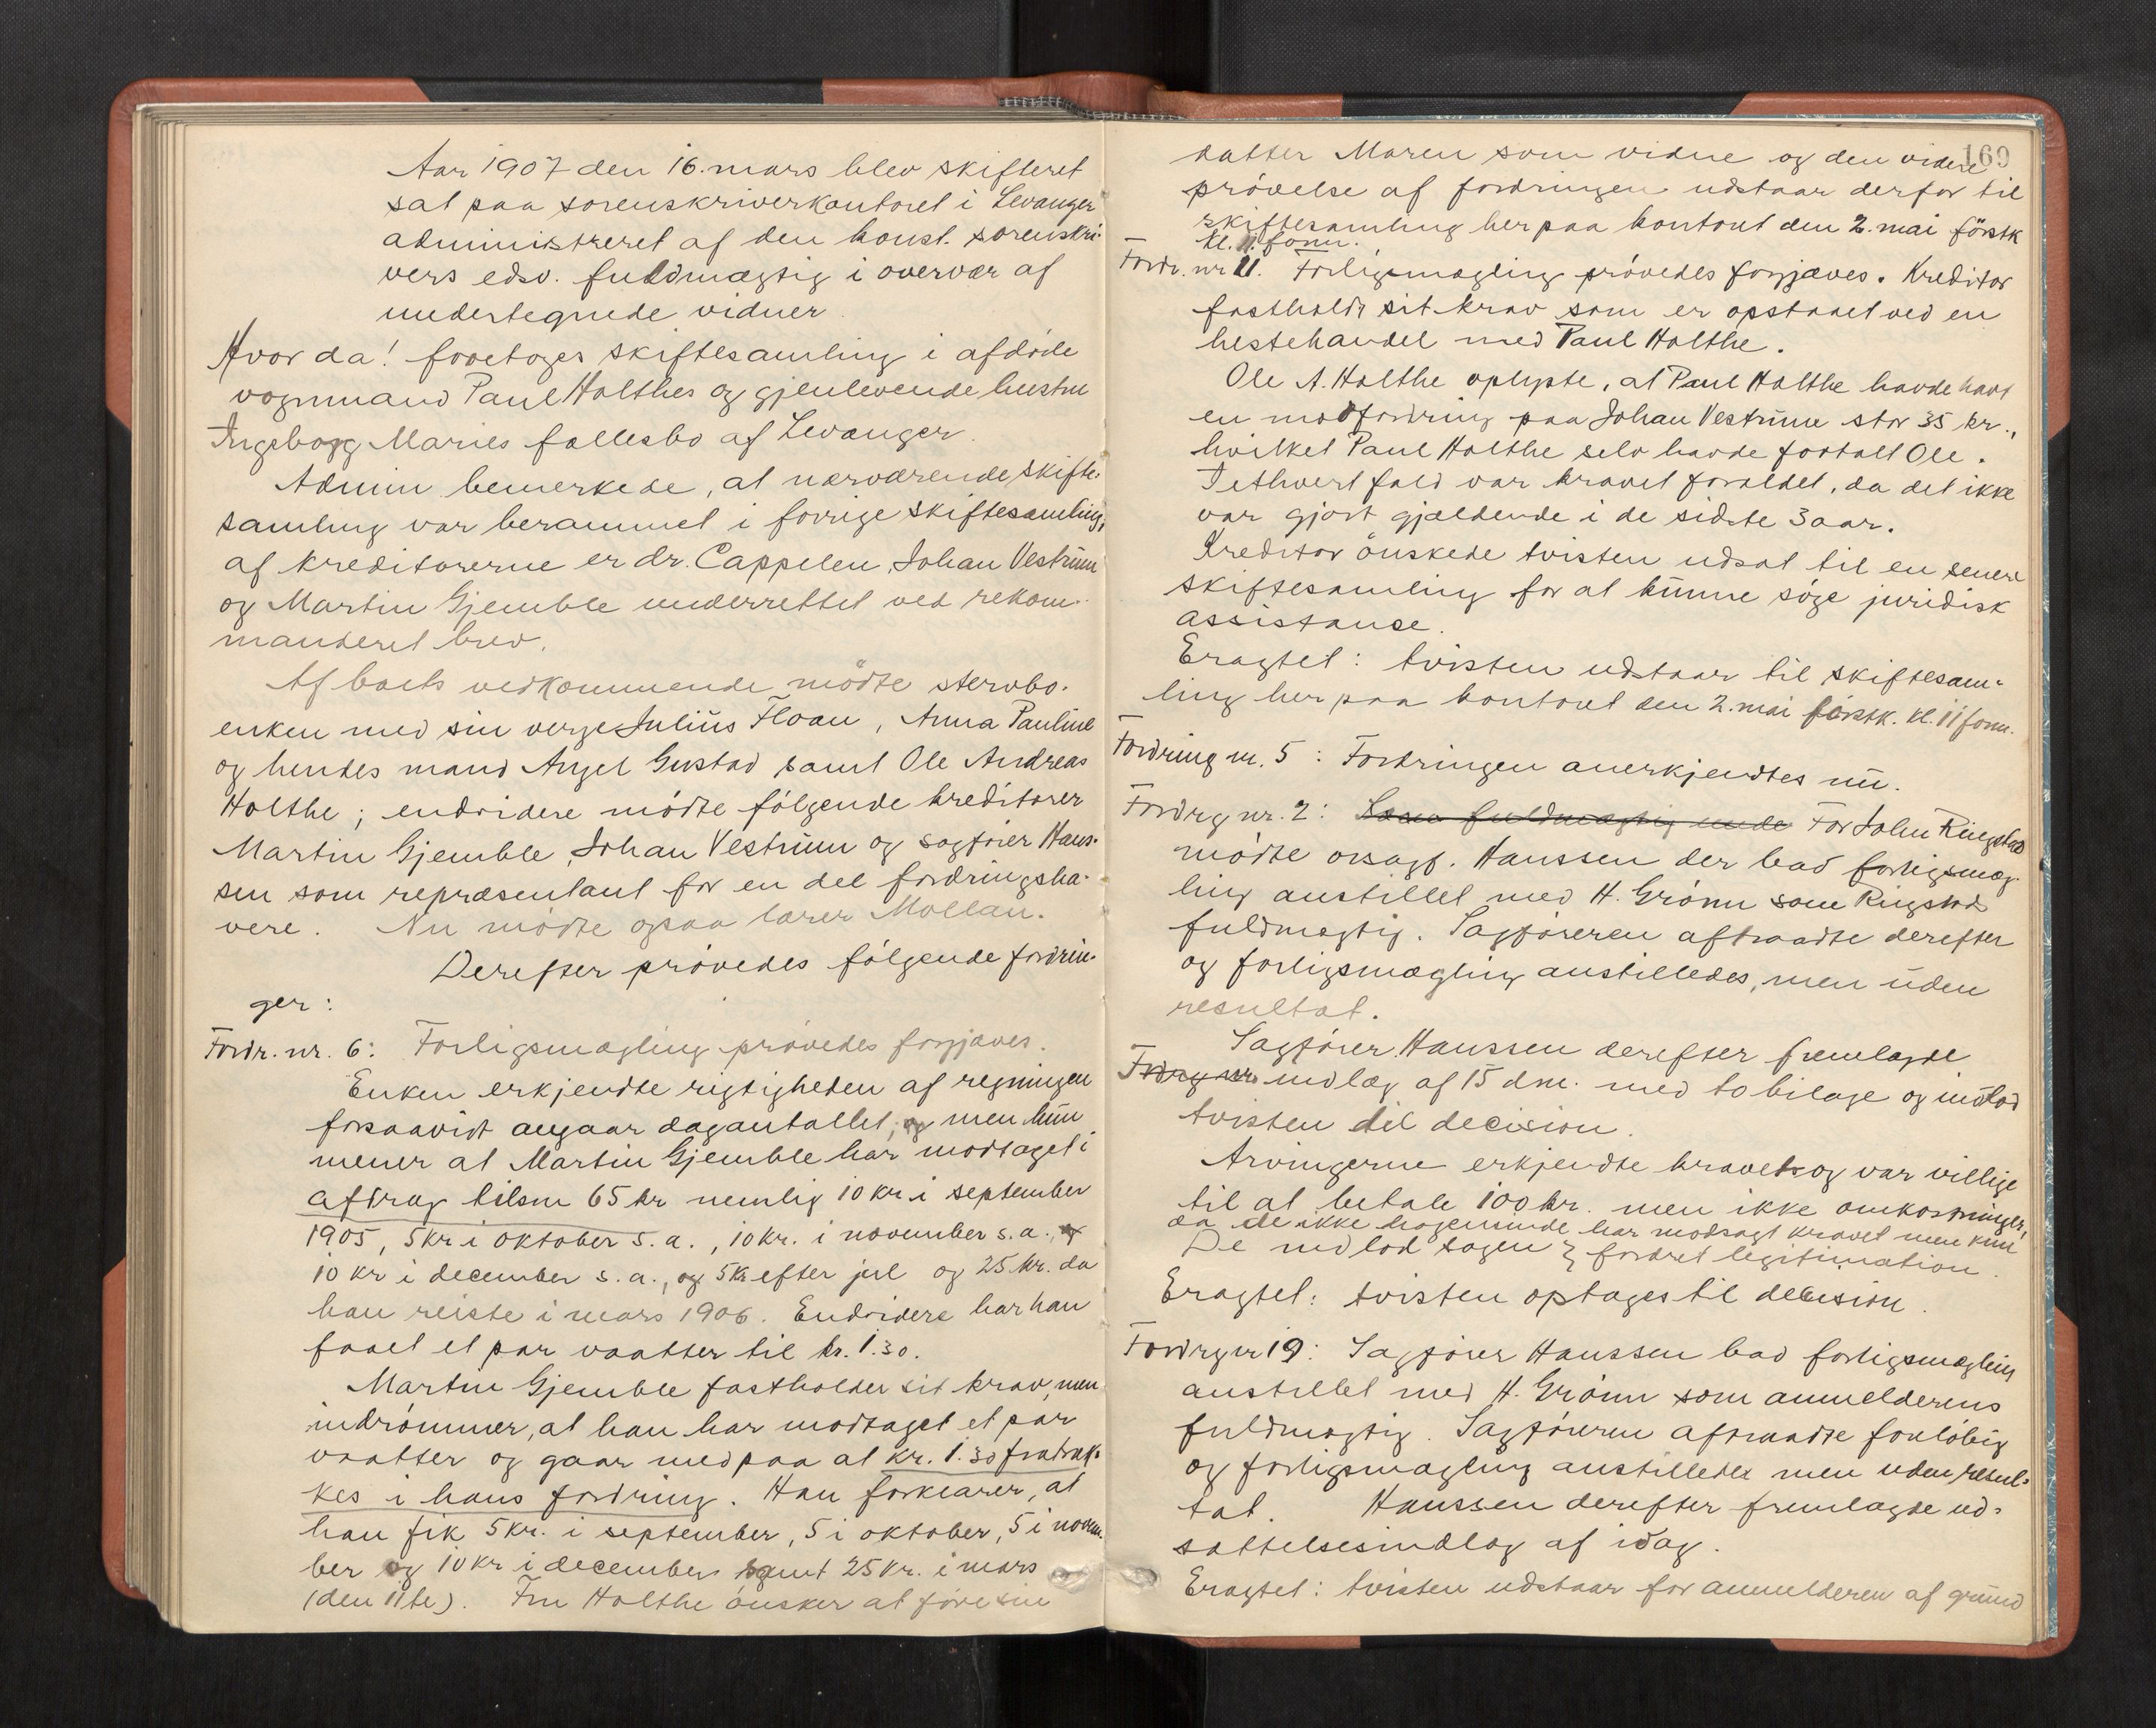 Aar 1907 den 16. mars blev skifteret
sat paa sorenskriverkontoret i Levanger
administreret af den konst. sorenskri-
vers edsv. fuldmægtig i overvær af
undertegnede vidner.
Hvor da! foretoges skiftesamling i afdøde
vognmand Paul Holthes og gjenlevende hustru
Ingeborg Maries fællesbo af Levanger.
Admin bemerkede, at nærværende skifte-
samling var berammet i forrige skiftesamling,
af kreditorerne er dr. Cappelen, Johan Vestrum
og Martin Gjemble underrettet ved rekom-
manderet brev.
Af boets vedkommende mødte stervbo-
enken med sin verge Julius Floan, Anna Pauline
og hendes mand Angel Gustad samt Ole Andreas
Holthe; endvidere mødte følgende kreditorer
Martin Gjemble, Johan Vestrum og sagfører Hans-
sen som repræsentant for en del fordringsha-
vere. Nu mødte ogsaa lærer Mollan.
Derefter prøvedes følgende fordrin-
ger:
Fordr. nr. 6: Forligsmægling prøvedes forgjæves.
Enken erkjendte rigtigheden af regningen
forsaavidt angaar dagantallet, og men hun
mener at Martin Gjemble har modtaget i
afdrag tilsm 65 kr nemlig 10 kr i september
1905, 5 kr i oktober s.a., 10 kr. i november s.a., og
10 kr i december s.a., og 5 kr efter jul og 25 kr. da
han reiste i mars 1906. Endvidere har han
faaet et par vaatter til kr. 1.30.
Martin Gjemble fastholder sit krav, men
indrømmer, at han har modtaget et par
vaatter og gaar med paa at kr. 1.30 fratræk-
kes i hans fordring. Han forklarer, at
han fik 5 kr. i september, 5 i oktober, 5 i novem-
ber og 10 kr i december samt 25 kr. i mars
(den 11te). Fru Holthe ønsker at føre sin
169
datter Maren som vidne og den videre
prøvelse af fordringen udstaar derfor til
skiftesamling her paa kontoret den 2. mai førstk
kl. 11 form.
Fordr. nr 11. Forligsmægling prøvedes forgjæves. Kreditor
fastholdt sit krav som er opstaaet ved en
hestehandel med Paul Holthe.
Ole A. Holthe oplyste, at Paul Holthe havde havt
en modfordring paa Johan Vestrum stor 35 kr.,
hvilket Paul Holthe selv havde fortalt Ole.
I ethvert fald var kravet forældet, da det ikke
var gjort gjældende i de sidste 3 aar.
Kreditor ønskede tvisten udsat til en senere
skiftesamling for at kunne søge juridisk
assistanse.
Eragtet: tvisten udstaar til skiftesam-
ling her paa kontoret den 2. mai førstk. kl. 11 form.
Fordring nr. 5: Fordringen anerkjendtes nu.
Fordrg nr. 2: Som fuldmægtig møde For John Ringstad
mødte orsagf. Hanssen der bad forligsmæg-
ling anstillet med H. Grønn som Ringstads
fuldmægtig. Sagføreren aftraadte derefter
og forligsmægling anstilledes, men uden
resultat.
Sagfører Hanssen derefter fremlagde
Fordrg nr. indlæg af 15 dm. med to bilage og indlod
tvisten til decision.
Arvingerne erkjendte kravet og var villige
til at betale 100 kr. men ikke omkostninger,
da de ikke har modsagt kravet men kun
De indlod sagen fordret legitimation.
Eragtet: tvisten optages til decision.
Fordrg nr 19: Sagfører Hanssen bad forligsmægling
anstillet med H. Grønn som anmelderens
fuldmægtig. Sagføreren aftraadte foreløbig
og forligsmægling anstilledes men uden resul-
tat. Hanssen derefter fremlagde ud-
sættelsesindlæg af idag.
Eragtet: tvisten udstaar for anmelderen af grund